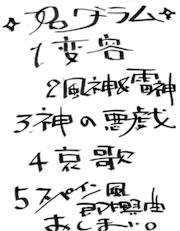 ☆プログラム☆
1変容
2風神&雷神
3神の悪戯
4哀歌
5スペイン風
即興曲
おしまい。